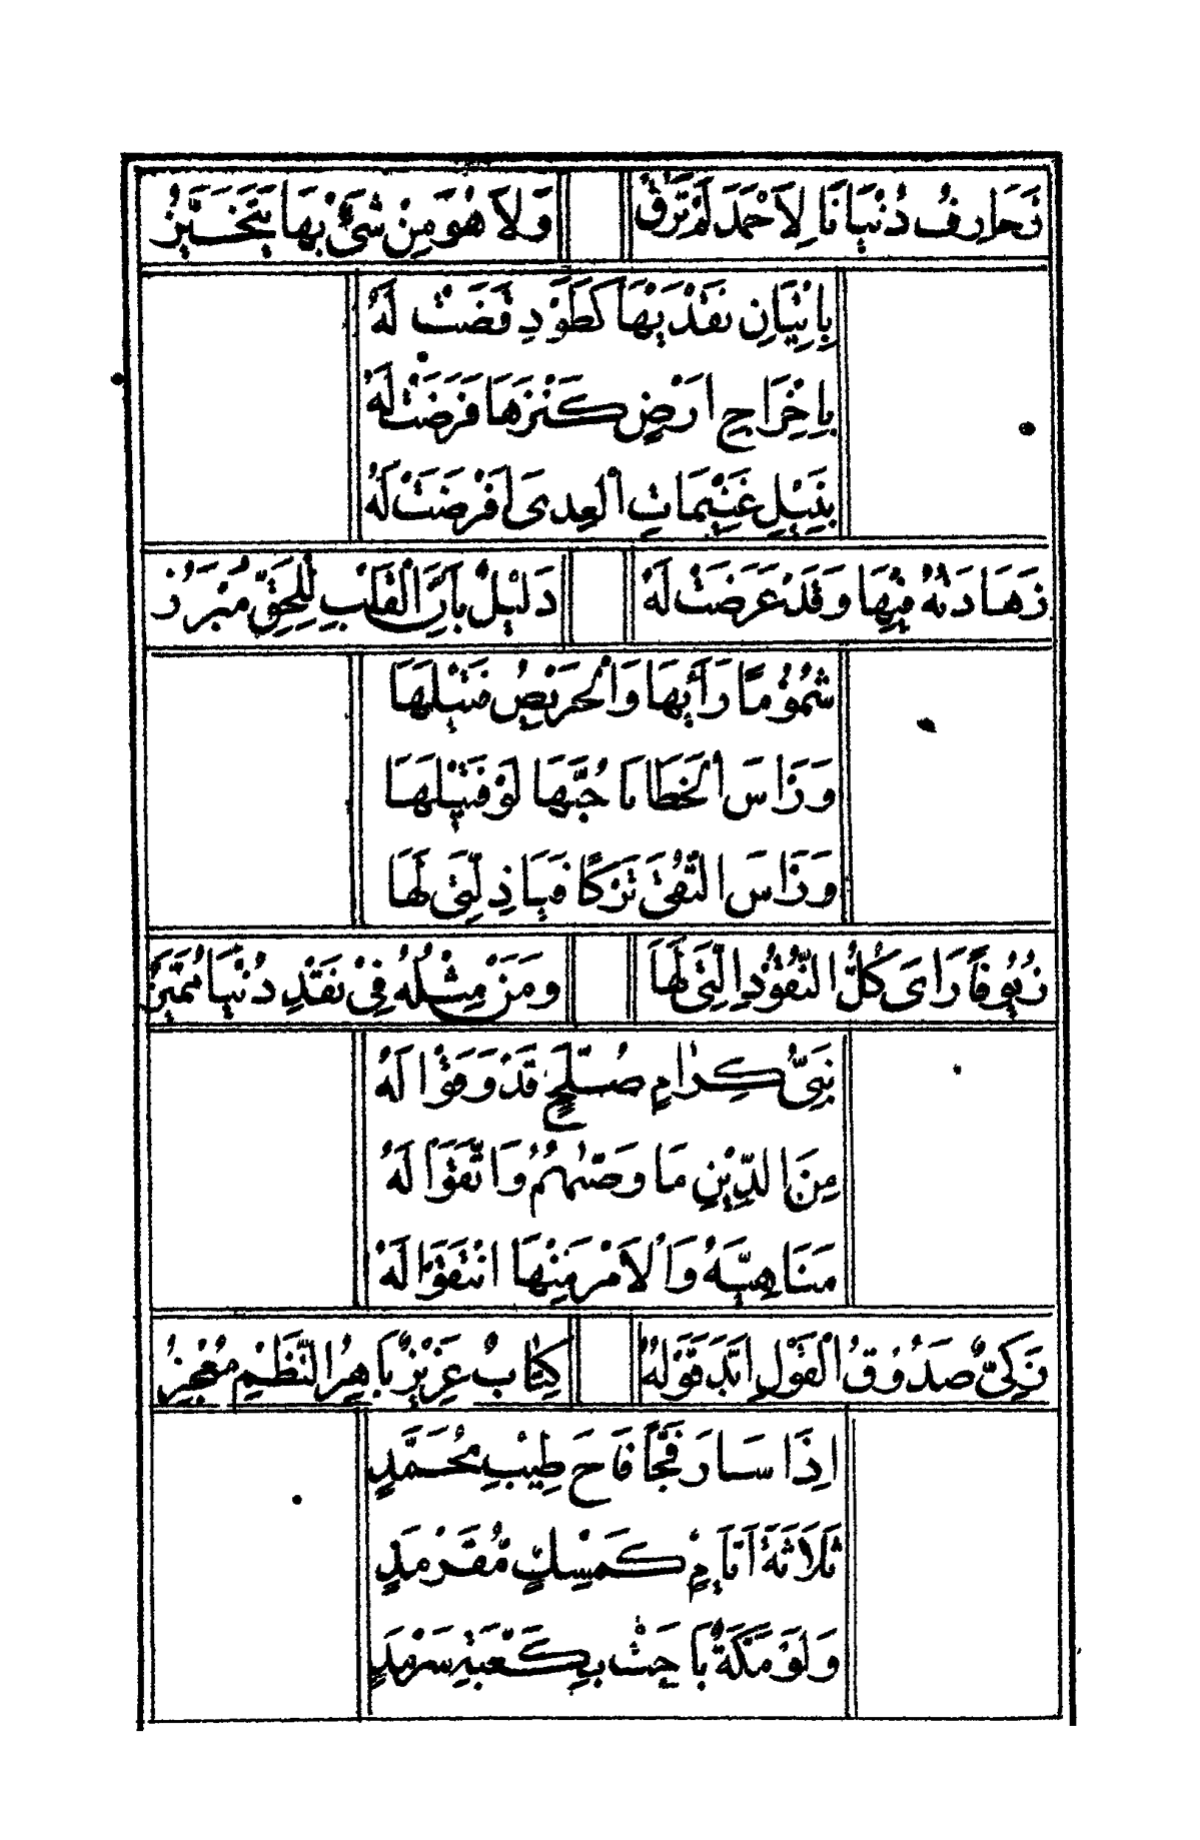 زَخَارِفُ دُنْيَانَا لِاَحْمَدَ لَمْ تَرُقْ وَلَا هُوَ مِنْ شَيْءٍ بِهَا يَتَحَيَّزُ
بِاِتْيَانِ نَقْدَيْهَا كَطَوْدٍ قَضَتْ لَهُ
بِاِخْرَاجِ اَرْضٍ كَنْزَهَا فَرَضَتْ لَهُ
بِنَيْلِ غَنِيْمَاتِ الْعِدٰى اَفْرَضَتْ لَهُ
زَهَادَتُهُ فِيْهَا وَقَدْ عَرَضَتْ لَهُ دَلِيْلٌ بِاَنَّ الْقَلْبَ لِلْحَقِّ مُبْرَزُ
شُمُوْمًا رَاٰىهَا وَالْحَرِيْصُ قَتِيْلُهَا
وَرَاْسَ الْخَطَايَا حُبَّهَا لَوْ فَتِيْلُهَا
وَرَاْسَ التُّقٰى تَرْكًا فَيَا ذِلَّتِيْ لَهَا
زُيُوْفًا رَاٰى كُلَّ النُّقُوْدِ الَّتِيْ لَهَا وَمَنْ مِثْلُهُ فِيْ نَقْدِ دُنْيَا مُمَيِّزُ
نَبِيُّ كِرَامٍ صُلَّحٍ قَدْ وَفَوْا لَهُ
مِنَ الدِّيْنِ مَا وَصّٰىهُمُ وَاتَّقَوْا لَهُ
مَنَاهِيَهُ وَالْاَمْرَ مِنْهَا انْتَقَوْا لَهُ
زَكِيٌّ صَدُوْقُ الْقَوْلِ اَيَّدَ قَوْلَهُ كِتَابٌ عَزِيْزٌ بَاهِرُ النَّظْمِ مُعْجِزُ
اِذَا سَارَ فَجًّا فَاحَ طِيْبُ مُحَمَّدٍ
ثَلَاثَةَ اَيَّامٍ كَمِسْكٍ مُقَرْمَدٍ
وَلَوْ مَكَّةٌ بَاحَتْ بِكَعْبَةِ سَرْمَدٍ